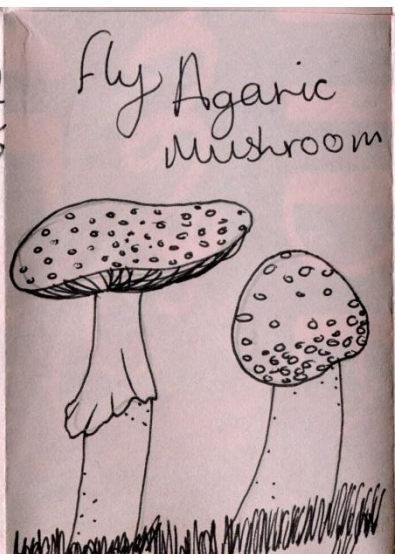 Fly Agaric
Mushroom